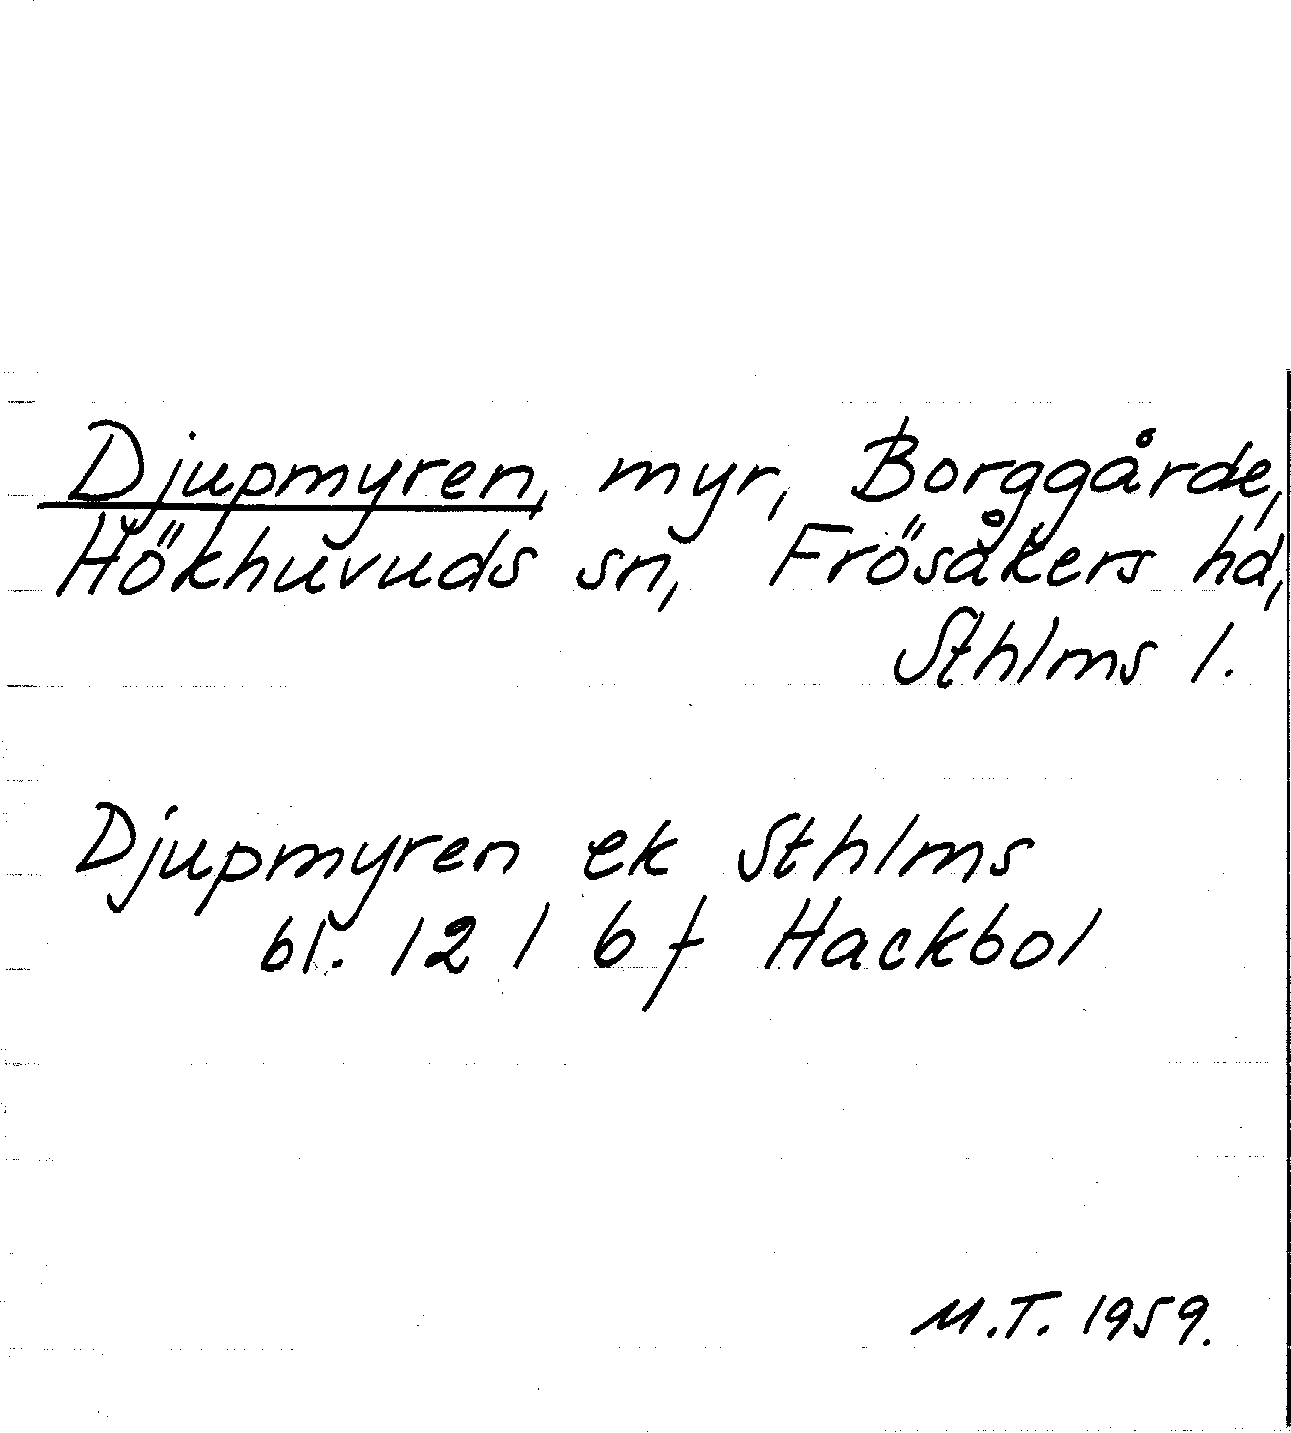 Djupmyren, myr, Borggårde,
Hökhuvuds sn, Frösåkers hd,
Sthlms l.
Djupmyren ek Sthlms
bl. 12 l b f Hackbol
M.T. 1959.